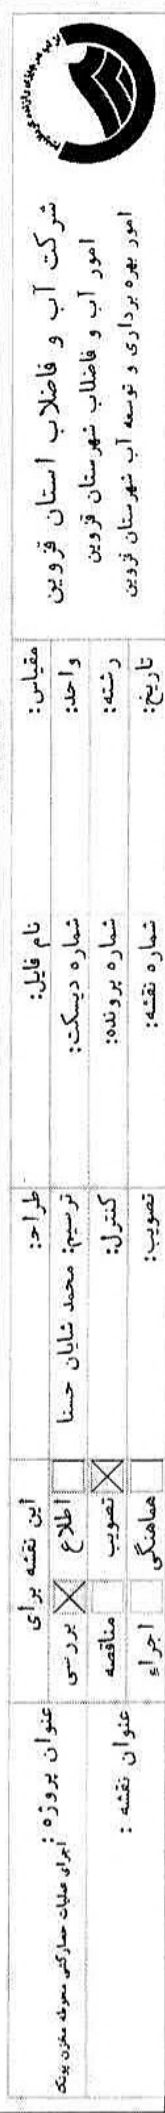 شرکت آب و فاضلاب استان قزوین
امور آب و فاضلاب شهرستان قزوین
امور بهره برداری و توسعه آب شهرستان قزوین
مقیاس:
واحد:
رشته:
تاریخ:
نام فایل:
شماره دیسکت:
شماره پرونده:
شماره نقشه:
طراح:
ترسیم: محمد شایان حسنا
کنترل:
تصویب:
این نقشه برای
اطلاع
بررسی
تصویب
مناقصه
هماهنگی
اجراء
عنوان پروژه :
اجرای عملیات حصارکشی محوطه مخزن پونک
عنوان نقشه :